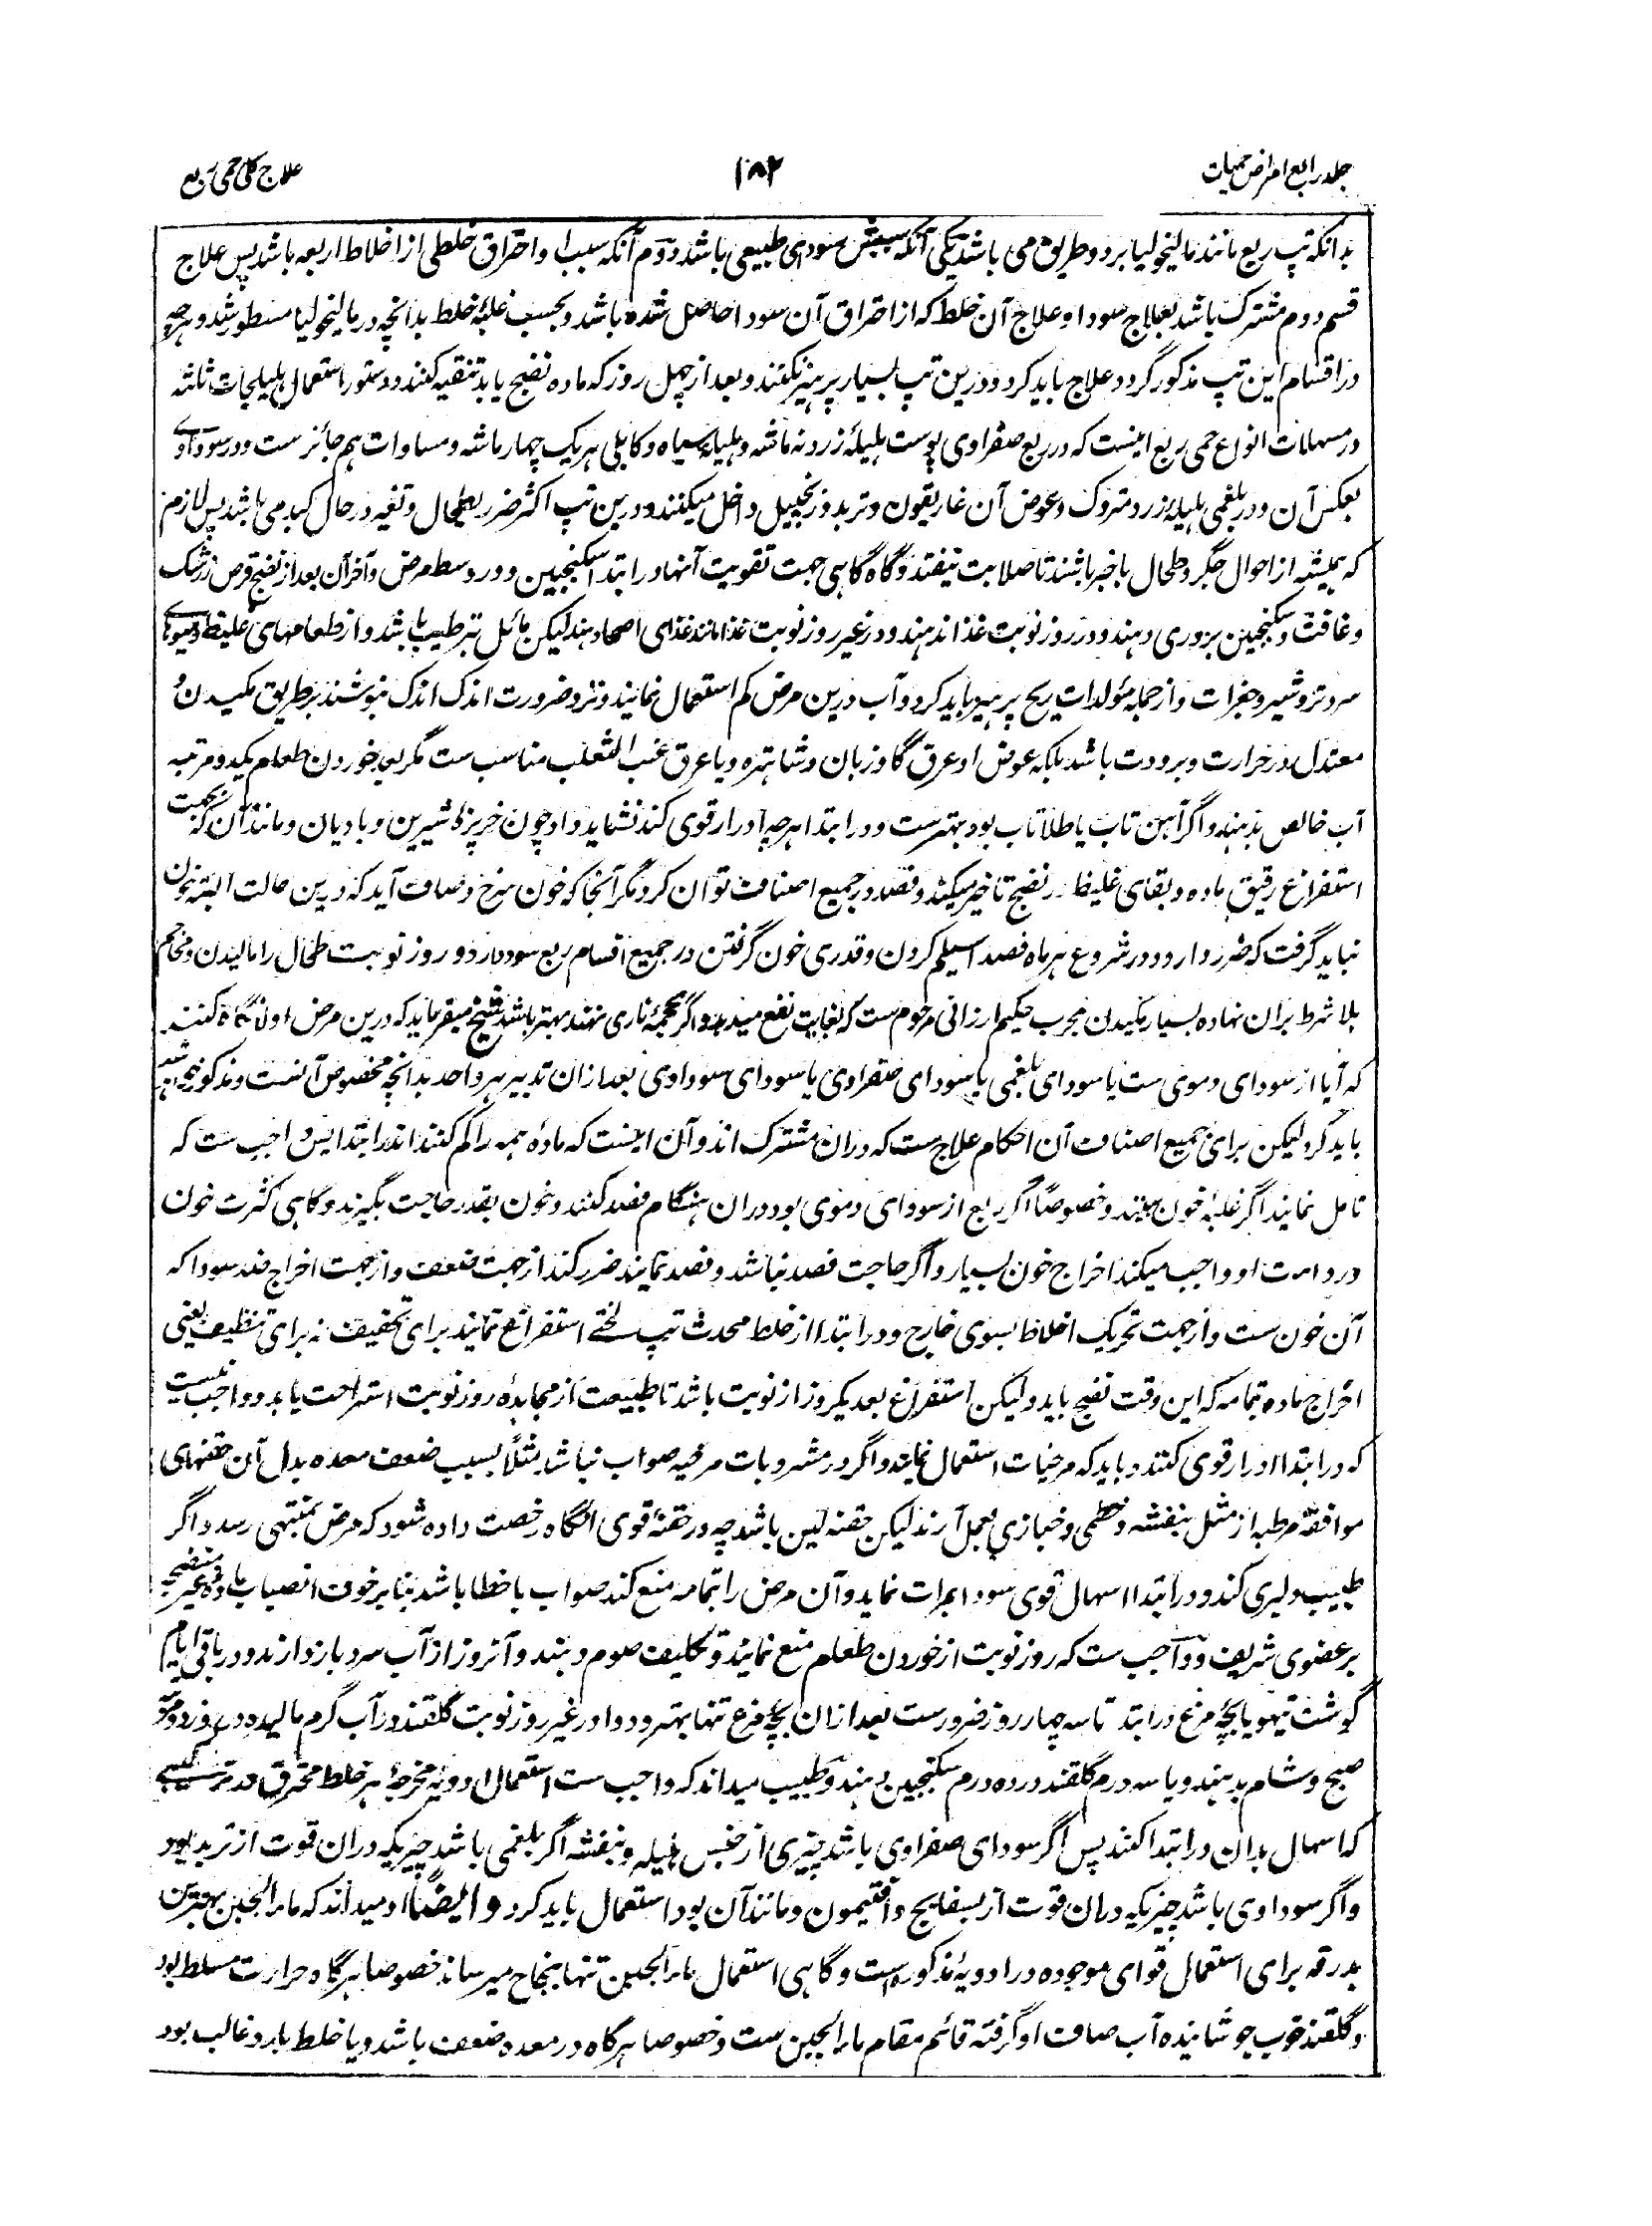 جلد رابع امراض حمیات
۱۸۲
علاج کلی حمی ربع
بدانکه تپ ربع مانند مالیخولیا بر دو طریق می باشد یکی آنکه سببش سودای طبیعی باشد دوم آنکه سبب او احتراق خلطی از اخلاط اربعه باشد پس علاج
قسم دوم مشترک باشد بعلاج سودا و علاج آن خلط که از احتراق آن سودا حاصل شده باشد و بحسب غلبهٔ خلط بدانچه در مالیخولیا مسطور شد و هرچه
در اقسام این تپ مذکور گردد علاج باید کرد و درین تپ بسیار پرهیز نکنند و بعد از چهل روز که ماده نضج یابد تنقیه کنند و دستور استعمال هلیلجات ثلثه
در مسهلات انواع حمی ربع اینست که در ربع صفراوی پوست هلیلهٔ زرد نه ماشه و هلیلهٔ سیاه و کابلی هر یک چهار ماشه و مساوات هم جائزست و در سوداوی
بعکس آن و در بلغمی هلیلهٔ زرد متروک و عوض آن غاریقون و تربد و زنجبیل داخل میکنند و درین تپ اکثر ضرر بطحال و تغیر در حال کبد می باشد پس لازم
که همیشه از احوال جگر و طحال باخبر باشند تا صلابت نیفتد و گاه گاهی جهت تقویت آنها در ابتدا سکنجبین و در وسط مرض و آخر آن بعد از نضج قرص زرشک
و غافث و سکنجبین بزوری دهند و در روز نوبت غذا ندهند و در غیر روز نوبت غذا مانند غذای اصحا دهند لیکن مائل بترطیب باشد و از طعامهای غلیظ و میوهای
سرد و تر و شیر و جغرات و از جمله مولدات ریح پرهیز باید کرد و آب درین مرض کم استعمال نمایند و نزد ضرورت اندک اندک بنوشند بر طریق مکیدن و
معتدل در حرارت و برودت باشد بلکه عوض او عرق گاوزبان و شاهتره و یا عرق عنب الثعلب مناسب ست مگر بعد خوردن طعام یکدو مرتبه
آب خالص بدهند و اگر آهن تاب یا طلا تاب بود بهترست و در ابتدا هرچه ادرار قوی کند نشاید داد چون خرپزهٔ شیرین و بادیان و مانند آن که بجهت
استفراغ رقیق ماده و بقای غلیظ در نضج تاخیر میکند و فصد در جمیع اصناف توان کرد مگر آنجا که خون سرخ و صاف آید که درین حالت البته خون
نباید گرفت که ضرر دارد و در شروع هر ماه فصد اسیلم کردن و قدری خون گرفتن در جمیع اقسام ربع سود دارد و روز نوبت طحال را مالیدن و محاجم
بلا شرط بران نهاده بسیار مکیدن مجرب حکیم ارزانی مرحوم ست که بغایت نفع میدهد و اگر محجمهٔ ناری نهند بهتر باشد شیخ میفرماید که درین مرض اولا نگاه کنند
که آیا از سودای دموی ست یا سودای بلغمی یا سودای صفراوی یا سودای سوداوی بعد ازان تدبیر هر واحد بدانچه مخصوص آنست و مذکور خواهد شد
باید کرد لیکن برای جمیع اصناف آن احکام علاج ست که دران مشترک اند و آن اینست که مادهٔ همه را کم کنند اندر ابتدا پس واجب ست که
تامل نمایند اگر غلبهٔ خون بینند و خصوصاً اگر ربع از سودای دموی بود دران هنگام فصد کنند و خون بقدر حاجت بگیرند و گاهی کثرت خون
و رداءت او واجب میکند اخراج خون بسیار و اگر حاجت فصد نباشد و فصد نمایند ضرر کند از جهت ضعف و از جهت اخراج ضد سودا که
آن خون ست و از جهت تحریک اخلاط بسوی خارج و در ابتدا از خلط محدث تپ لختے استفراغ نمایند برای تخفیف نه برای تنظیف یعنی
اخراج ماده بتمامه که این وقت نضج باید و لیکن استفراغ بعد یکروز از نوبت باشد تا طبیعت از مجاهدهٔ روز نوبت استراحت یابد و واجب نیست
که در ابتدا ادرار قوی کنند و باید که مرخیات استعمال نمایند و اگر در مشروبات مرخیه صواب نباشد مثلاً بسبب ضعف معده بدل آن حقنهای
موافقه مرطبه از مثل بنفشه و خطمی و خبازی بعمل آرند لیکن حقنه لین باشد چه در حقنهٔ قوی انگاه رخصت داده شود که مرض بمنتهی رسد و اگر
طبیب دلیری کند و در ابتدا اسهال قوی سودا بمرات نماید و آن مرض را بتمامه منع کند صواب با خطا باشد بنا بر خوف انصباب مادهٔ غیر منضجه
بر عضوی شریف و واجب ست که روز نوبت از خوردن طعام منع نمایند و تکلیف صوم دهند و آنروز از آب سرد باز دارند و در باقی ایام
گوشت تیهو یا بچهٔ مرغ در ابتدا تا سه چهار روز ضرورست بعد ازان بچهٔ مرغ تنها بهتر و دوا در غیر روز نوبت گلقند در آب گرم مالیده در روزی دو مرتبه
صبح و شام بدهند و یا سه درم گلقند در ده درم سکنجبین دهند و طبیب میداند که واجب ست استعمال ادویهٔ مخرجهٔ هر خلط محترق در ترکیبی
که اسهال بدان در ابتدا کنند پس اگر سودای صفراوی باشد چیزی از جنس هلیله و بنفشه اگر بلغمی باشد چیزیکه دران قوت از تربد بود
و اگر سوداوی باشد چیزیکه دران قوت از بسفایج و افتیمون و مانند آن بود استعمال باید کرد و ایضاً او میداند که ماءالجبن بهترین
بدرقه برای استعمال قوای موجوده در ادویهٔ مذکوره است و گاهی استعمال ماءالجبن تنها بنجاح میرساند خصوصا هرگاه حرارت مسلط بود
و گلقند خوب جوشانیده آب صاف او گرفته قائم مقام ماءالجبن ست و خصوصا هرگاه در معده ضعف باشد و یا خلط بارد غالب بود